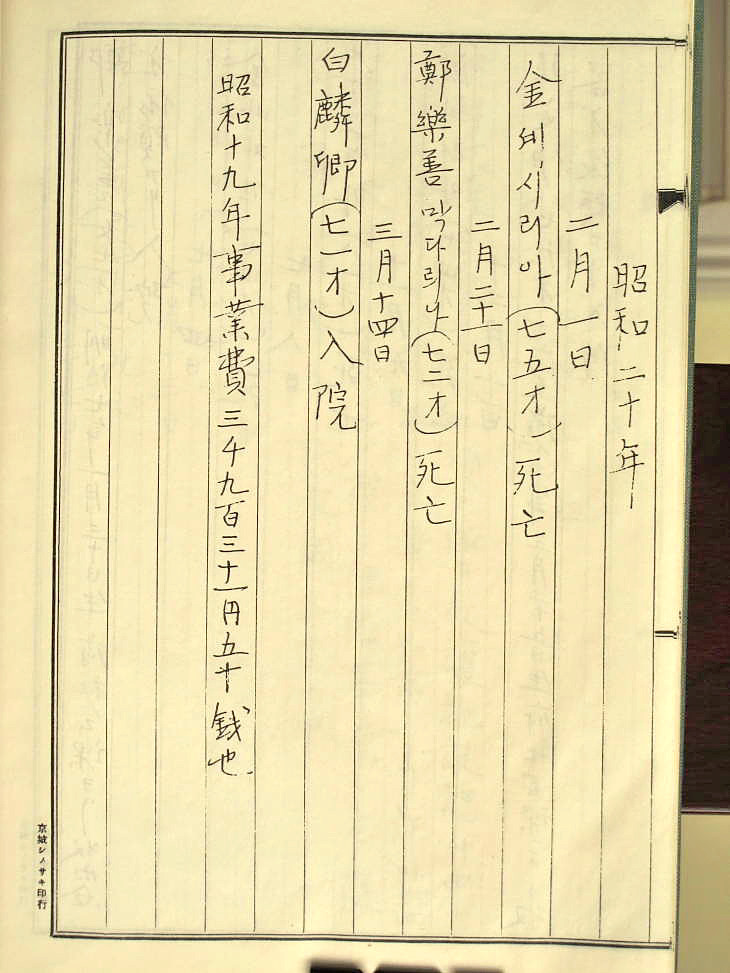 昭和二十年
二月一日
金세시리아(七五才)死亡
二月二十一日
鄭樂善막다릐나(七二才)死亡
三月十四日
白麟卿(七一才)入院
昭和十九年事業費三千九百三十一円五十銭也
京城シノサキ印行